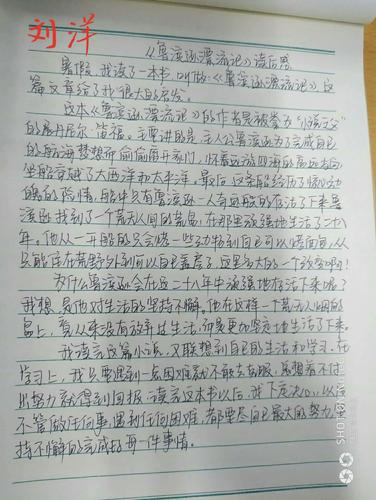 刘洋
《鲁滨逊漂流记》读后感
暑假,我读了一本书,叫做《鲁滨逊漂流记》,这
篇文章给了我很大的启发。
这本《鲁滨逊漂流记》的作者是被誉为“小说之父”
的丹尼尔·笛福。主要讲的是:主人公鲁滨逊为了完成自己
的航海梦想而偷偷离开家门,怀着远游四海的高远志向,
坐船穿越了大西洋和太平洋。最后,这条船经历了惊心动
魄的险情,船中只有鲁滨逊一人奇迹般的存活了下来。鲁
滨逊找到了一个荒无人烟的荒岛,在那里顽强地生活了二十八
年。他从一开始的只会 一些 到自己可以 ,从
只能住在荒野外到可以自己盖房子,这是多大的一个改变啊!
为什么鲁滨逊会在这二十八年中顽强地存活下来呢?
我想,是他对生活的坚持不懈。他在这样一个荒无人烟的
岛上,竟从来没有放弃过生活,而是更加坚定地生活了下来。
我读完这篇小说,又联想到自己的生活和学习。在
学习上,我只要遇到一点困难就不敢去克服,总想着不付
出努力就得到回报。读完这本书以后,我下定决心,以后
不管做任何事,遇到任何困难,都要尽自己最大的努力,坚
持不懈的完成好每一件事情。
SHOT ON